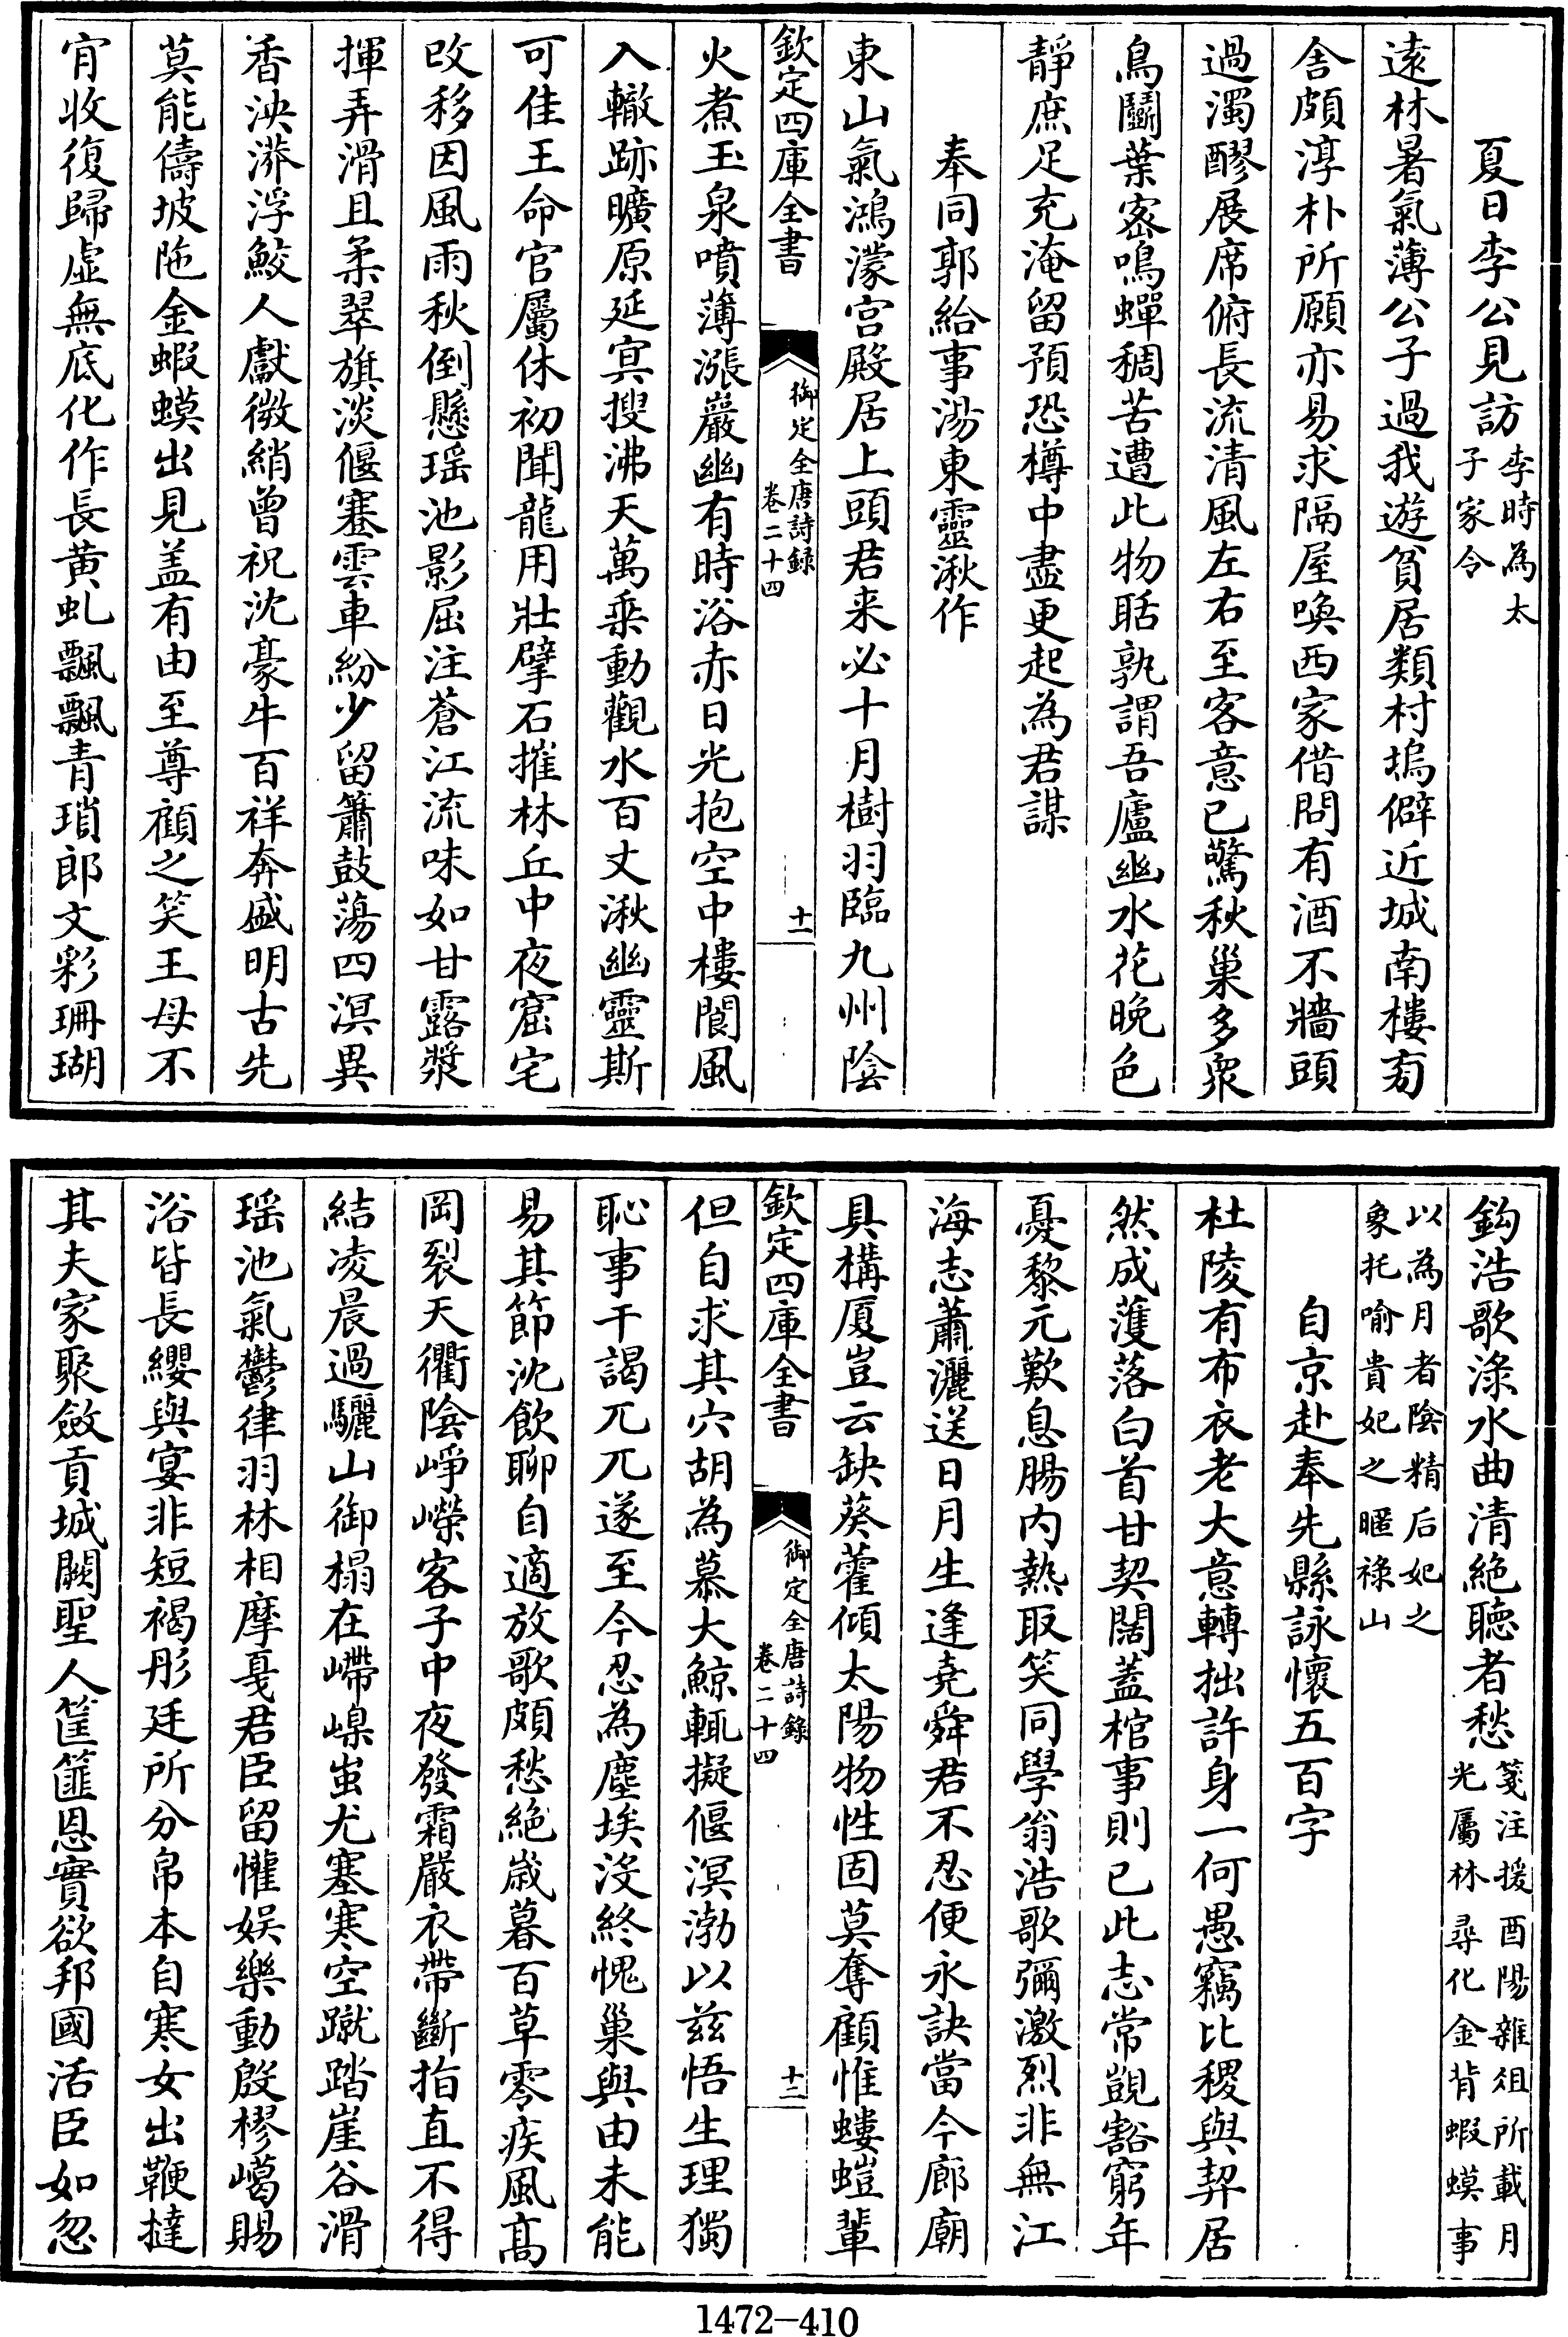 夏日李公見訪李時為太子家令
遠林暑氣薄公子過我遊貧居類村塢僻近城南樓旁
舍頗淳朴所願亦易求隔屋喚西家借問有酒不牆頭
過濁醪展席俯長流清風左右至客意已驚秋巢多衆
鳥鬭葉密鳴蟬稠苦遭此物聒孰謂吾廬幽水花晚色
靜庶足充淹留預恐樽中盡更起為君謀
奉同郭給事湯東靈湫作
東山氣鴻濛宮殿居上頭君来必十月樹羽臨九州陰
欽定四庫全書
御定全唐詩録
卷二十四
十一
火煮玉泉噴薄漲巖幽有時浴赤日光抱空中樓閬風
入轍跡曠原延冥搜沸天萬乘動觀水百丈湫幽靈斯
可佳王命官屬休初聞龍用壯擘石摧林丘中夜窟宅
改移因風雨秋倒懸瑶池影屈注蒼江流味如甘露漿
揮弄滑且柔翠旗淡偃蹇雲車紛少留簫鼓蕩四溟異
香泱漭浮鮫人獻微綃曾祝沈豪牛百祥奔盛明古先
莫能儔坡陁金蝦蟆出見盖有由至尊顧之笑王母不
肎收復歸虛無底化作長黄虬飄飄青瑣郎文彩珊瑚
鈎浩歌淥水曲清絶聴者愁箋注援酉陽雜俎所載月光屬林尋化金背蝦蟆事
以為月者陰精后妃之象托喻貴妃之暱祿山
自京赴奉先縣詠懷五百字
杜陵有布衣老大意轉拙許身一何愚竊比稷與契居
然成濩落白首甘契闊蓋棺事則已此志常覬豁窮年
憂黎元歎息腸内熱取笑同學翁浩歌彌激烈非無江
海志蕭灑送日月生逢堯舜君不忍便永訣當今廊廟
具構厦豈云缺葵藿傾太陽物性固莫奪顧惟螻螘輩
欽定四庫全書
御定全唐詩錄
卷二十四
十二
但自求其穴胡為慕大鯨輒擬偃溟渤以兹悟生理獨
恥事干謁兀兀遂至今忍為塵埃沒終愧巢與由未能
易其節沈飲聊自適放歌頗愁絶嵗暮百草零疾風髙
岡裂天衢陰崢嶸客子中夜發霜嚴衣帶斷指直不得
結凌晨過驪山御榻在嵽嵲蚩尤塞寒空蹴踏崖谷滑
瑶池氣鬱律羽林相摩戛君臣留懽娱樂動殷樛嶱賜
浴皆長纓與宴非短褐彤廷所分帛本自寒女出鞭撻
其夫家聚斂貢城闕聖人筐篚恩實欲邦國活臣如忽
1472-410